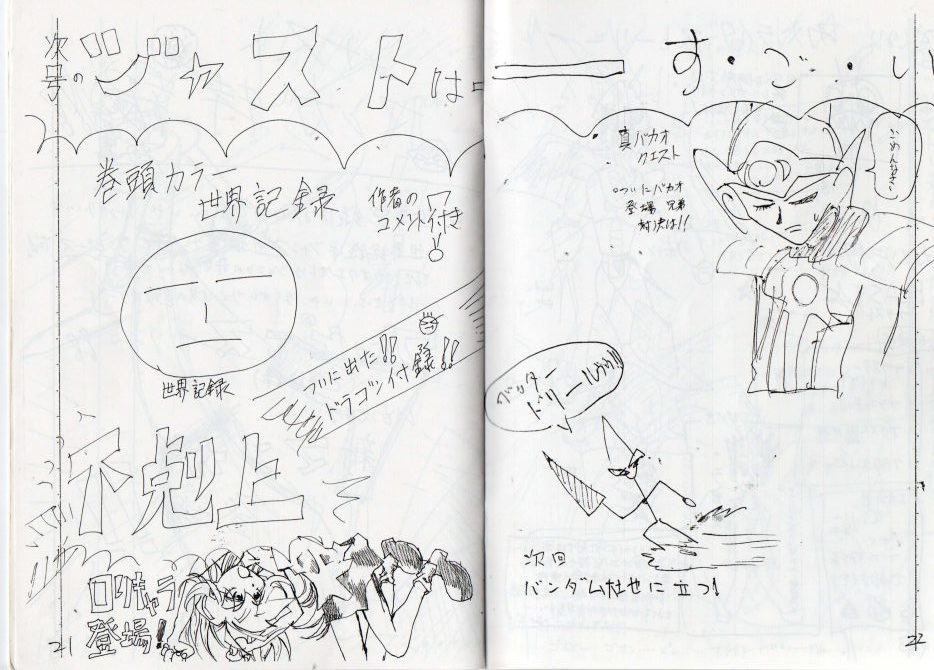 次号の
ジャストは
ーーす・ご・い
巻頭カラー
世界記録
作者の
コメント付き
!
世界記録
ついに出た!!
ドラゴン付録!!
下剋上
ロリキャラ
登場!
21
真バカオ
クエスト
ついにバカオ
登場 兄弟
対決は!!
ごめんなさい
ドリールゥゥ!!
次回
バンダム杜せに立つ!
22